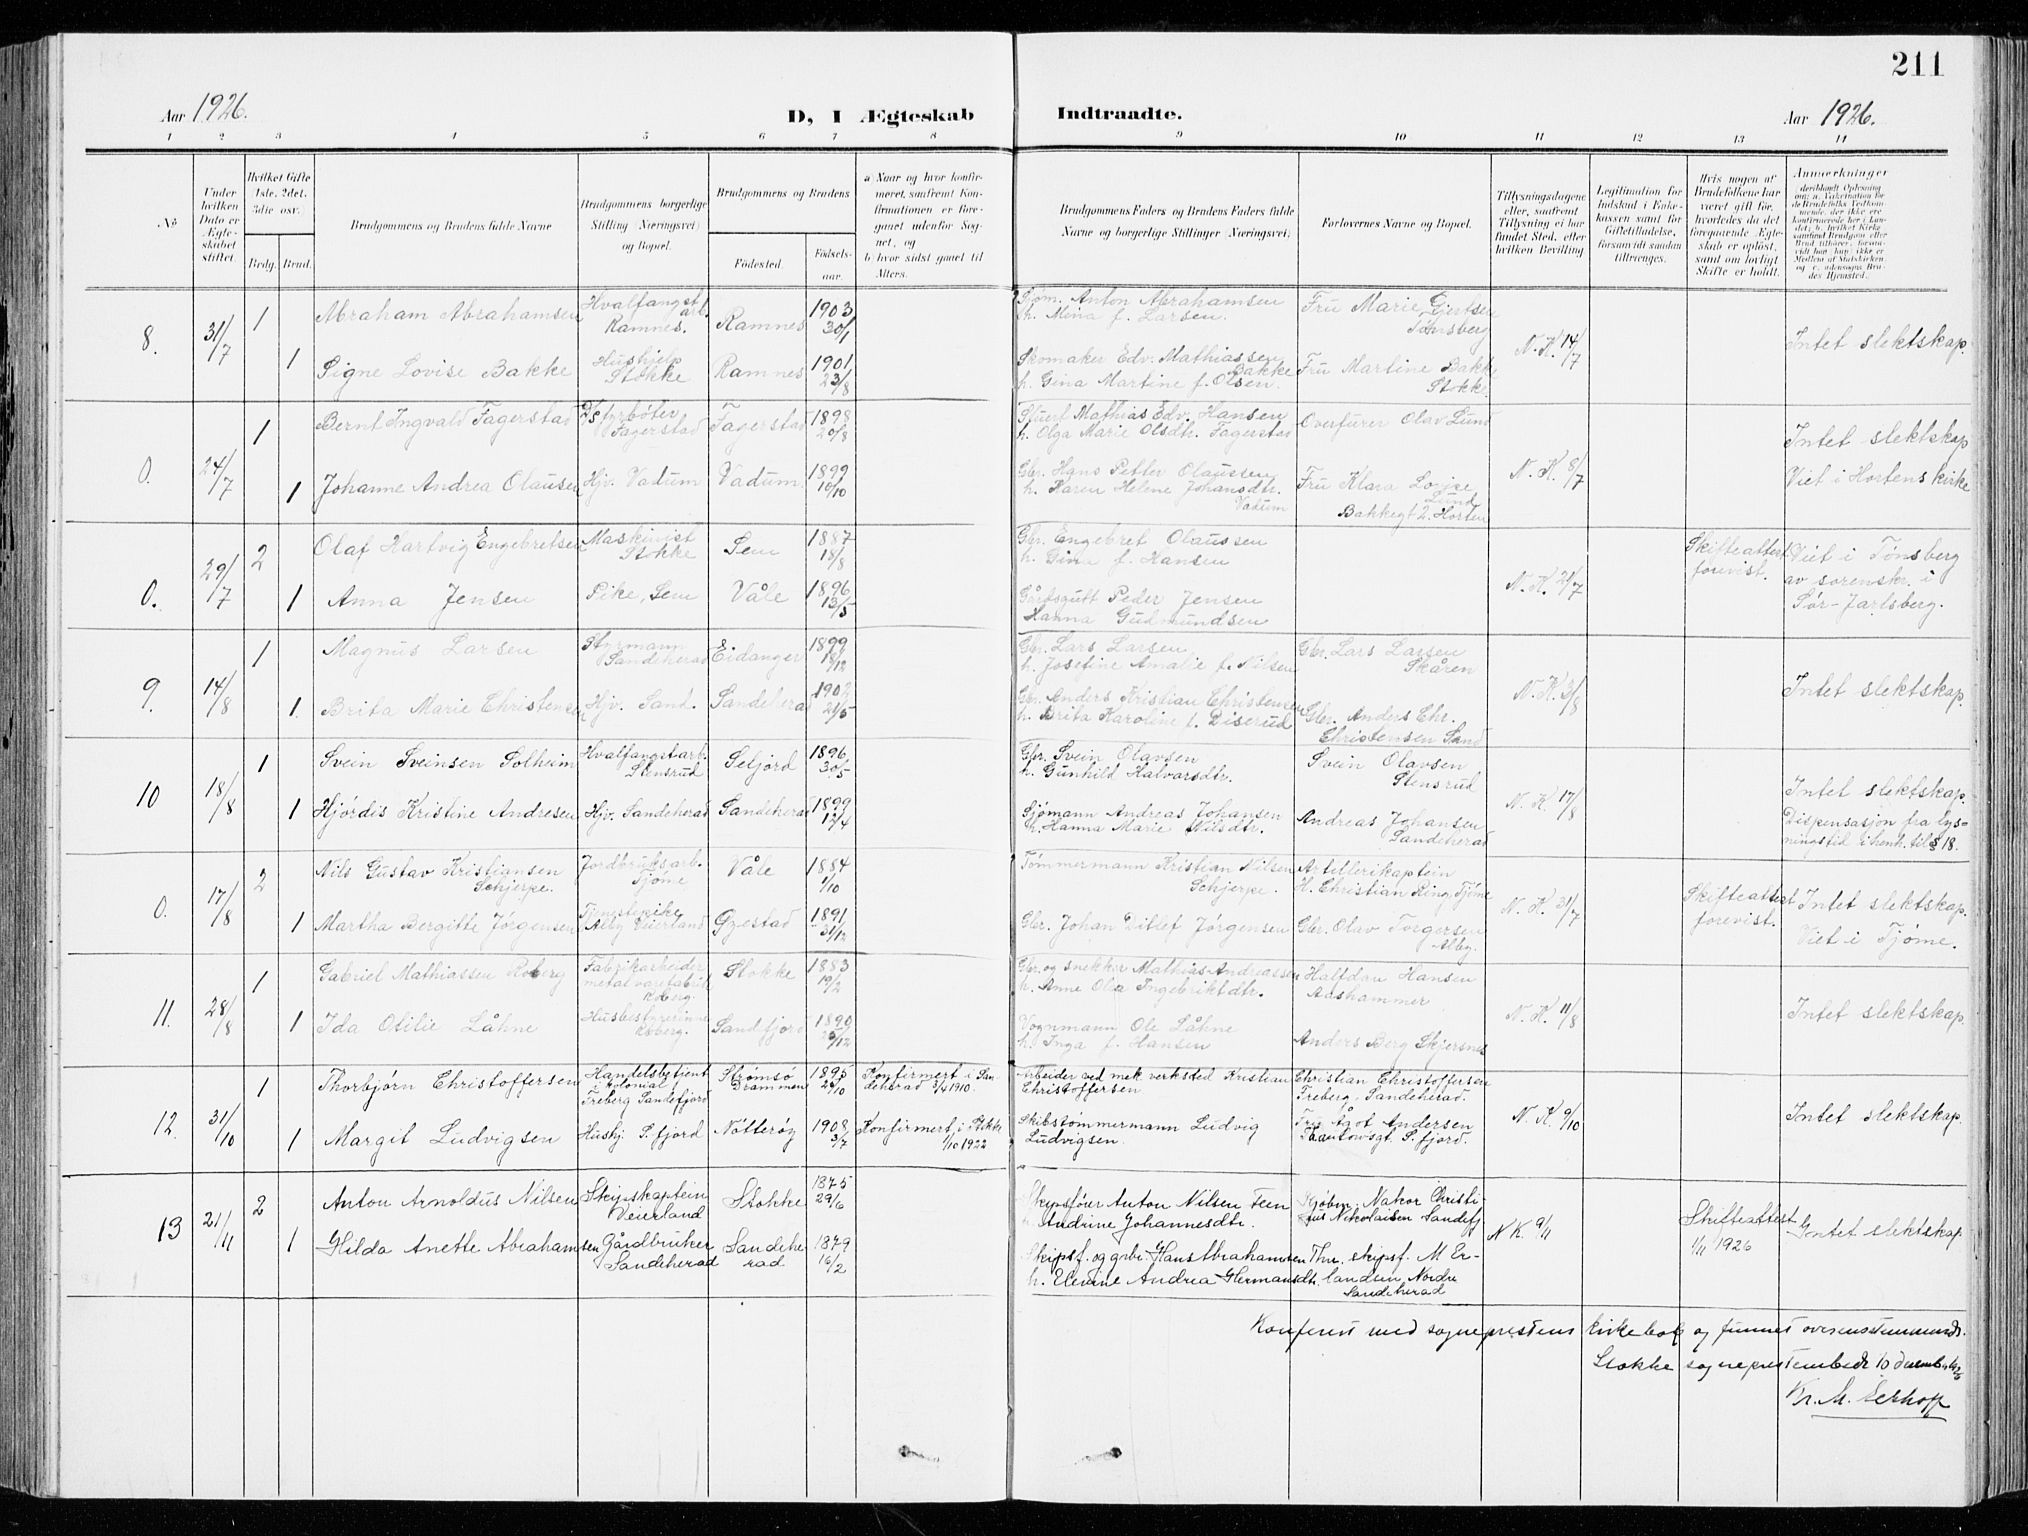 211
Aar 1926.
D, I Ægteskab Indtraadte.
Aar 1926.
1 2 3 4 5 6 7 8 9 10 11 12 13 14
No
Under hvilken Dato er Ægteskabet stiftet.
Hvilket Gifte 1ste, 2det, 3die osv.
Brdg. Brud.
Brudgommens og Brudens fulde Navne
Brudgommens borgerlige Stilling (Næringsvei) og Bopæl.
Brudgommens og Brudens
Fødested. Fødselsaar.
a) Naar og hvor konfirmeret, saafremt Konfirmationen er foregaaet udenfor Sognet, og
b) hvor sidst gaaet til Alters.
Brudgommens Faders og Brudens Faders fulde Navne og borgerlige Stillinger (Næringsvei)
Forlovernes Navne og Bopæl.
Tillysningsdagene eller, saafremt Tillysning ei har fundet Sted, efter hvilken Bevilling
Legitimation for Indskud i Enkekassen samt for Giftetilladelse, forsaavidt saadan tiltrænges.
Hvis nogen af Brudefolkene har været gift før, hvorledes da det foregaaende Ægteskab er opløst, samt om lovligt Skifte er holdt.
Anmerkninger
8. 31/7 1 Abraham Abrahamsen Hvalfangstarb. Ramnes. Ramnes 1903 30/1
Sjøm. Anton Abrahamsen
h. Mina f. Larsen.
Fru Marie Gjertsen
Tønsberg
N. K. 14/7
Intet slektskap.
1 Signe Lovise Bakke Hushjelp Stokke Ramnes 1901 23/8
Skomaker Edv. Mathiassen Bakke
h. Gina Martine f. Olsen.
Fru Martine Bakke
Stokke.
0. 24/7 1 Bernt Ingvald Fagerstad Fyrbøter Fagerstad Fagerstad 1898 20/8
Stuert Mathias Edv. Hansen
h. Olga Marie Olsdtr. Fagerstad
Overfurer Olav Lund
N. K. 8/7
Intet slektskap
Viet i Hortens kirke
1 Johanne Andrea Olausen Hjv. Vadum Vadum. 1899 10/10
Gbr. Hans Petter Olaussen
h. Karen Helene Johansdtr.
Vadum
Fru Klara Lovise
Lund
Bakkegt 2. Horten
0. 29/7 2 Olaf Hartvig Engebretsen Maskinist Stokke Sem 1887 18/8
Gbr. Engebret Olaussen
h. Gina f. Hansen
N. K. 21/7
Skifteattest forevist.
Viet i Tønsberg
av sorenskr. i
Sør-Jarlsberg.
1 Anna Jensen Pike, Sem Våle 1896 13/5
Gårdsgutt Peder Jensen
Hanna Gudmundsen
9. 14/8 1 Magnus Larsen Styrmann Sandeherad Eidanger 1899 18/12
Gbr. Lars Larsen
h. Josefine Amalie f. Nilsen
Gbr. Lars Larsen
Skåren
N. K. 3/8
Intet slektskap.
1. Brita Marie Christensen Hjv. Sand. Sandeherad 1902 21/5
Gbr. Anders Kristian Christensen
h. Brita Karoline f. Diserud
Gbr. Anders Chr.
Christensen Sand
10 18/8 1 Svein Sveinsen Solheim Hvalfangstarb. Stensrud Seljord 1896 30/5
Gbr. Svein Olavsen
h. Gunhild Halvorsdtr.
Svein Olavsen
Stensrud
N. K. 17/8
Intet slektskap.
Dispensasjon fra lys-
ningstid i henh. til § 18.
1 Hjørdis Kristine Andresen Hjv. Sandeherad Sandeherad 1899 12/4
Sjømann Andreas Johansen
h. Hanna Marie Nilsdtr.
Andreas Johansen
Sandeherad
0. 17/8 2 Nils Gustav Kristiansen Schjerpe. Jordbruksarb. Tjøme Våle 1884 1/10
Tømmermann Kristian Nilsen
Schjerpe.
Artillerikaptein
H. Christian Ring, Tjøme
N. K. 31/7
Skifteattest forevist.
Intet slektskap.
Viet i Tjøme.
1 Martha Bergitte Jørgensen Tjenestepike Alby Veierland Gjestad 1891 31/12
Gbr. Johan Ditlef Jørgensen
Gbr. Olav Torgersen
Alby.
11. 28/8 1 Gabriel Mathiassen Roberg Fabrikarbeider metalvarefabrik Roberg. Stokke 1883 19/2
Gbr. og snekker Mathias Andreassen
h. Anne Olia Ingebriktdtr.
Halfdan Hansen
Aashammer
N. K. 11/8
Intet slektskap.
1 Ida Otilie Låhne Husbestyrerinne Roberg. Sandefjord 1890
Vognmann Ole Låhne
h. Inga f. Hansen
Anders Berg Skjersnes
12. 31/10 1 Thorbjørn Christoffersen Handelsbetjent i kolonial, Freberg Sandefjord Strømsø Drammen 1895
Konfirmert i San-
deherad 3/4 1910.
Arbeider ved mek. verksted Kristian
Christoffersen
Christian Christoffersen
Freberg, Sandeherad.
N. K. 9/10
Intet slektskap.
1 Margit Ludvigsen Hushj. S. fjord Nøtterøy 1908 3/7
Konfirmert i Stokke
1/10 1922
Skibstømmermann Ludvig
Ludvigsen.
Fru Ågot Andersen
S. fjord.
13 21/11 2 Anton Arnoldus Nilsen Skipskaptein Veierland Stokke 1875 29/6
Skipsfører Anton Nilsen Teen
h. Andrine Johannesdtr.
Kjøbm. Nakor Christi-
Nikolaisen Sandefj
N K. 9/11
Skifteattest
1/11 1926
Intet slektskap
1 Hilda Anette Abrahamsen Gårdbruker Sandeherad Sandeherad 1879 16/2
Skipsf. og gbr. Hans Abrahamsen
h. Elevine Andrea Hermansdtr.
Thr. skipsf. M. Er-
landsen, Nordre
Sandeherad
Konferert med sogneprestens kirkebok og funnet overensstemmende.
Stokke sogneprestembede 10 desember 1926
Kr. M. Eckhoff